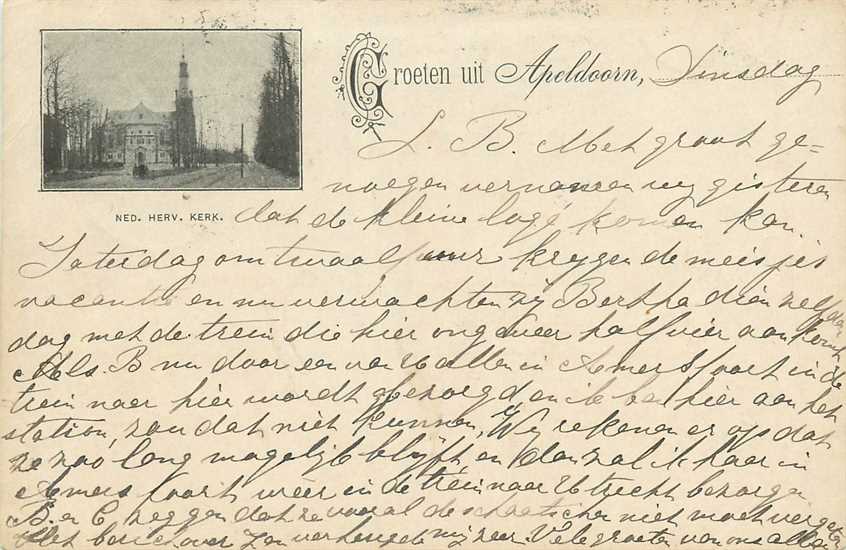 Groeten uit Apeldoorn, Dinsdag
L. B. Met groot ge=
noegen vernamen wij gisteren
NED. HERV. KERK.
dat de kleine logé komen kan.
Saterdag om twaalf uur krygen de meisjes
vacantie en nu verwachten wij Bertha dien zelfden
dag met de trein die hier ongeveer half vier aankomt
Als B nu door een van U allen in Amersfoort in de
trein naar hier wordt bezorgd, en ik ben hier aan het
station, zou dat niet kunnen, Wy rekenen er op dat
ze zoo lang mogelijk blyft en dan zal ik haar in
Amersfoort weer in de trein naar Utrecht bezorgen
B. en C zeggen dat ze vooral de schaatsen niet moet vergeten
Het bericht over verheugde my zeer. Vele groeten van ons allen